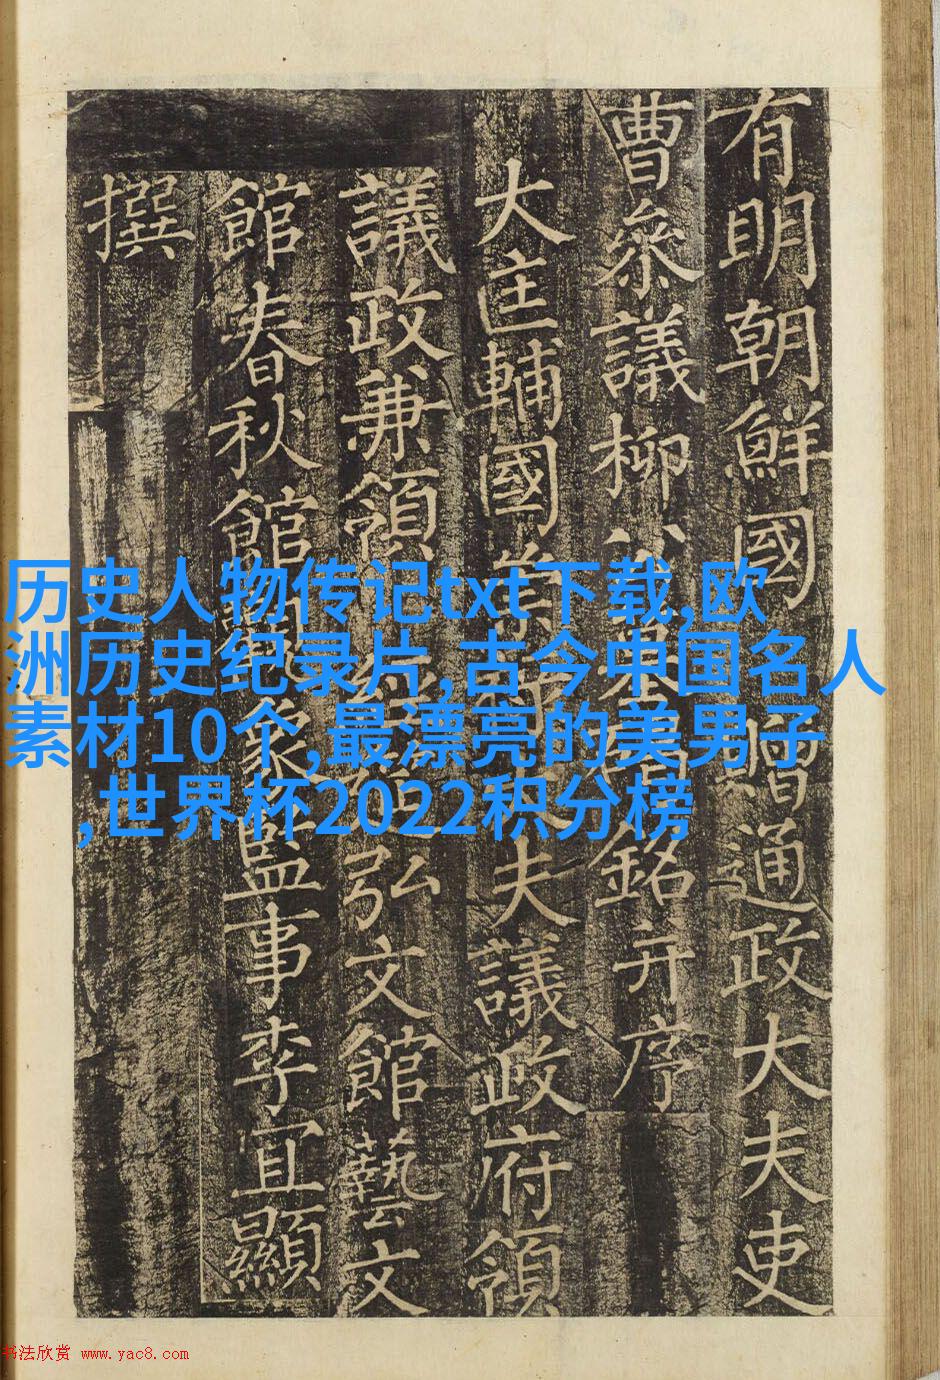 有明朝鮮國 贈通政大夫吏
曹叅議柳公墓碣銘并序
大匡輔國崇祿大夫議政府領
議政兼領 經筵弘文館藝文
館春秋館觀象監事李宜顯
撰
历史人物传记txt下载,欧
洲历史纪录片,古今中国名人
素材10个,最漂亮的美男子
,世界杯2022积分榜
书法欣赏 www.yac8.com